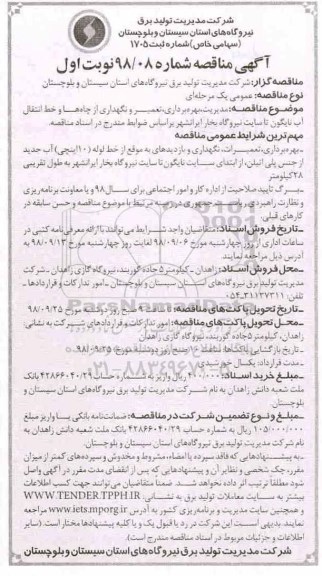 شرکت مدیریت تولید برق
نیروگاه‌های استان سیستان و بلوچستان
(سهامی خاص) شماره ثبت ۱۷۰۵
آگهی مناقصه شماره ۹۸/۰۸ نوبت اول
مناقصه گزار: شرکت مدیریت تولید برق نیروگاه‌های استان سیستان و بلوچستان
نوع مناقصه: عمومی یک مرحله‌ای
موضوع مناقصه: مدیریت، بهره‌برداری، تعمیر و نگهداری از چاه‌ها و خط انتقال
آب نایگون تا سایت نیروگاه بخار ایرانشهر براساس ضوابط مندرج در اسناد مناقصه.
مهم‌ترین شرایط عمومی مناقصه
ـ بهره‌برداری، تعمیرات، نگهداری و بازدیدهای به موقع از خط لوله (۱۰ اینچی) آب جدید
از جنس پلی اتیلن، از ابتدای سایت نایگون تا سایت نیروگاه بخار ایرانشهر به طول تقریبی
۲۸ کیلومتر
ـ برگ تایید صلاحیت از اداره کار و امور اجتماعی برای سال ۹۸ و یا معاونت برنامه‌ریزی
و نظارت راهبردی ریاست جمهوری در رسته مرتبط با موضوع مناقصه و حسن سابقه در
کارهای قبلی.
ـ تاریخ فروش اسناد: متقاضیان واجد شرایط می‌توانند با ارائه معرفی‌نامه کتبی در
ساعات اداری از روز چهارشنبه مورخ ۹۸/۰۹/۰۶ لغایت روز چهارشنبه مورخ ۹۸/۰۹/۱۳ به
آدرس ذیل مراجعه نمایند.
ـ محل فروش اسناد: زاهدان ـ کیلومتر ۵ جاده گوربند، نیروگاه گازی زاهدان ـ شرکت
مدیریت تولید برق نیروگاه‌های استان سیستان و بلوچستان ـ امور تدارکات و قراردادها ـ
تلفن: ۳۱۱۳۷۳۱۱-۰۵۴
ـ تاریخ تحویل پاکت‌های مناقصه: ساعت ۹ صبح روز دوشنبه مورخ ۹۸/۰۹/۲۵
ـ محل تحویل پاکت‌های مناقصه: امور تدارکات و قراردادهای شرکت به نشانی
زاهدان، کیلومتر ۵ جاده گوربند، نیروگاه گازی زاهدان
ـ تاریخ بازگشایی پاکت‌ها: ساعت صبح روز دوشنبه مورخ ۹۸/۰۹/۲۵
ـ مدت قرارداد: یکسال خورشیدی
ـ مبلغ خرید اسناد: ریال واریز به شماره حساب ۴۲۸۶۶۰۴۰/۲۹ بانک
ملت شعبه دانش زاهدان به نام شرکت مدیریت تولید برق نیروگاه‌های استان سیستان و
بلوچستان.
ـ مبلغ و نوع تضمین شرکت در مناقصه: ضمانت‌نامه بانکی یا واریز مبلغ
۱۰۵/۰۰۰/۰۰۰ ریال به شماره حساب ۴۲۸۶۶۰۴۰/۲۹ بانک ملت شعبه دانش زاهدان به
نام شرکت مدیریت تولید برق نیروگاه‌های استان سیستان و بلوچستان.
ـ به پیشنهادهایی که فاقد سپرده یا امضاء، مشروط و مخدوش و سپرده‌های کمتر از میزان
مقرر، چک شخصی و نظایر آن و پیشنهادهایی که پس از انقضای مدت مقرر در آگهی واصل
شود مطلقاً ترتیب اثر داده نخواهد شد. ضمناً متقاضیان می‌توانند جهت کسب اطلاعات
بیشتر به سایت معاملات تولید برق به نشانی: WWW.TENDER.TPPH.IR
و همچنین سایت مدیریت و برنامه‌ریزی کشور به آدرس iets.mporg.ir مراجعه
نمایند. بدیهی است این شرکت در رد یا قبول یک و یا کلیه پیشنهادها مختار است. (سایر
اطلاعات و جزئیات مربوط در اسناد مناقصه مندرج است).
شرکت مدیریت تولید برق نیروگاه‌های استان سیستان و بلوچستان